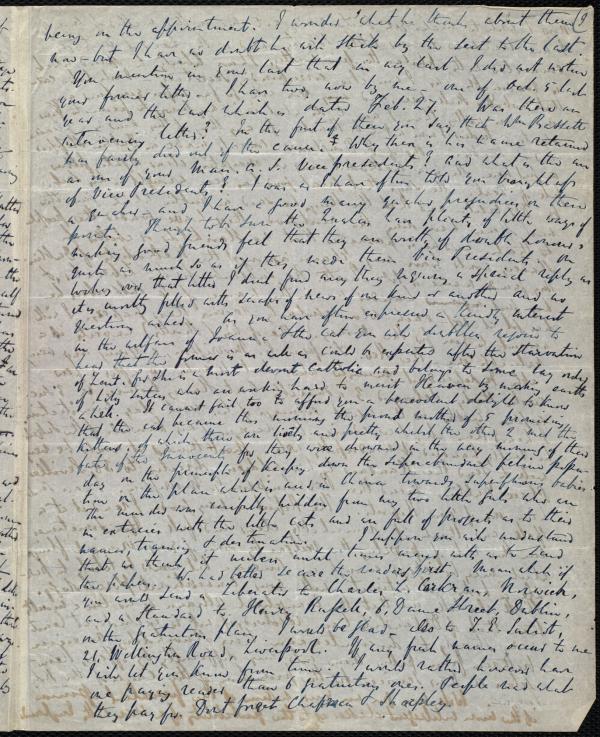 being on the appointment. I wonder what he thinks about them (9
now - but I have no doubt he will stick by the Sect to the last
You mention in your last that in my last I did not notice
your former letter. I have two now by me - one of Oct. 5 last
year and the last which is dated Feb. 27. Was there an
intervening letter? In the first of these you say that Wm Bassett
has fairly died out of the cause. Why then is his name retained
as one of your Mass. A. S. Vice presidents? And what is the use
of Vice Presidents? I was as I have often told you brought up
a quaker - and I have a good many quaker prejudices on these
points. Though to be sure the Quakers have plenty of little ways of
making good friends feel that they are worthy of double honour,
quite as much so as if they made them Vice Presidents. On
looking over that letter I don't find any thing requiring a special reply as
it is mostly filled with scraps of news of one kind or another and no
questions asked. As you have often expressed a kindly interest
in the welfare of Joanna & the cat you will doubtless rejoice to
hear that the former is as well as could be expected after the starvation
of Lent. for she is a most devout Catholic and belongs to some lay order
of holy sisters who are working hard to merit Heaven by making earth
a hell. It cannot fail too to afford you a benevolent delight to know
that the cat became this morning the proud mother of 5 promising
kittens, of which three are lively and pretty whilst the other 2 met the
fate of the Innocents for they were drowned in the very morning of their
day on the principle of keeping down the superabundant feline population
on the plan which is used in China towards superfluous babies
The murder was carefully hidden from my two little girls who are
in extacies with the little cats, and are full of projects as to their
names, training & destination. I suppose you will understand
that we think it useless until times mend with us to send
the papers. We had better secure the readers first. Meanwhile if
you would send a Liberator to Charles L. Corkran, Norwich,
and a Standard to Henry Russell, 6, Dame Street, Dublin,
on the gratuitous plan, I would be glad - also to T. E. Suliot,
21, Wellington Road, Liverpool. If any fresh names occur to me
I will let you know from time. I would rather however have
one paying reader than 6 gratuitous ones. People read what
they pay for. Dont forget Chapman & Sharpley